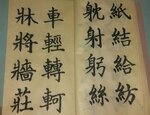 紙結給紡
躭射躬絲
車輕轉軻
牀將牆莊